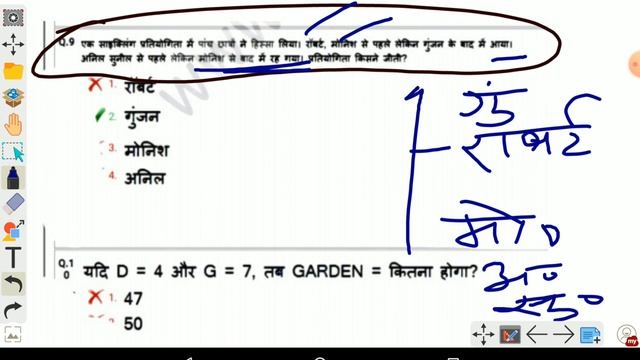 Q.9 एक साइक्लिंग प्रतियोगिता में पांच छात्रों ने हिस्सा लिया। रॉबर्ट, मोनिश से पहले लेकिन गुंजन के बाद में आया।
अनिल सुनील से पहले लेकिन मोनिश से बाद में रह गया। प्रतियोगिता किसने जीती?
1. रॉबर्ट
2. गुंजन
3. मोनिश
4. अनिल
गुं
राबर्ट
मो०
अ०
सु०
Q.10 यदि D = 4 और G = 7, तब GARDEN = कितना होगा?
1. 47
2. 50